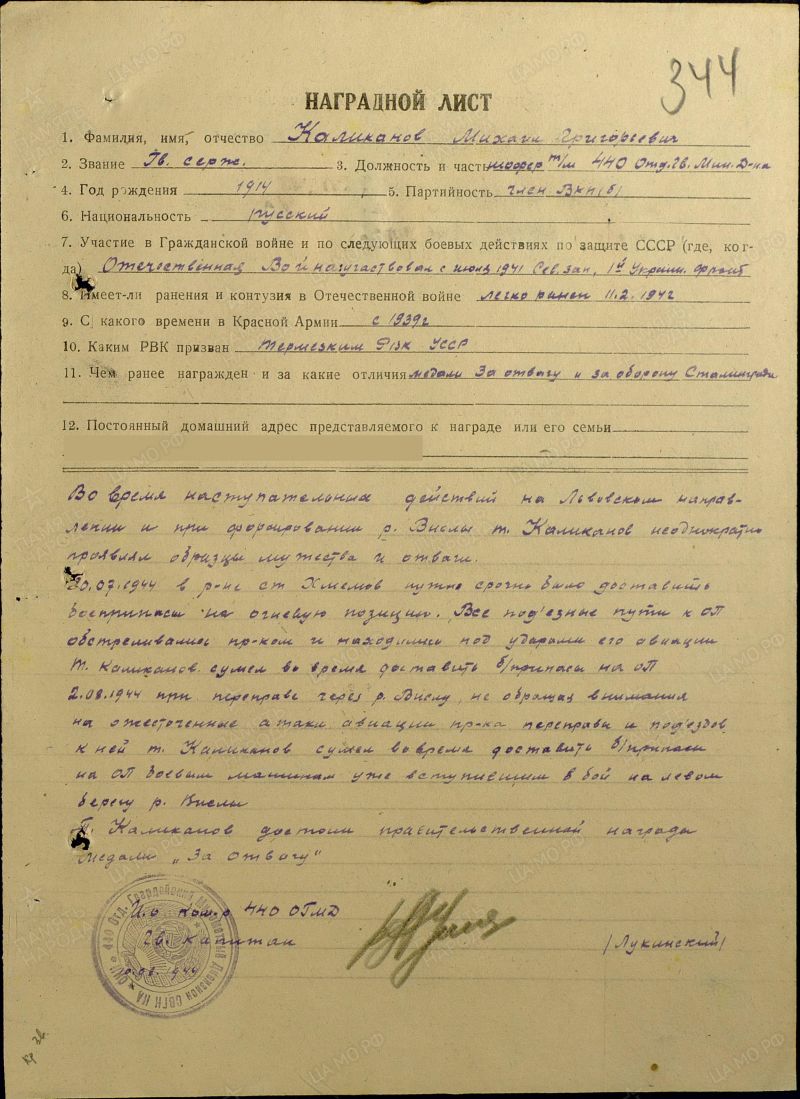 344
НАГРАДНОЙ ЛИСТ
1. Фамилия, имя, отчество Каликанов Михаил Григорьевич
2. Звание Гв. серж. 3. Должность и часть шофер т/м 440 Отд. Гв. Мин. Д-на
4. Год рождения 1914 5. Партийность член ВКП(б)
6. Национальность русский
7. Участие в Гражданской войне и по следующих боевых действиях по защите СССР (где, ког-
да) Отечественная Война участвовал с июля 1941 Сев. зап., 1й Украин. фронт
8. Имеет-ли ранения и контузия в Отечественной войне легко ранен 11.2.1942
9. С какого времени в Красной Армии с 1939г
10. Каким РВК призван Термезким РВК УССР
11. Чем ранее награжден и за какие отличия медали За отвагу и за оборону Сталинграда
12. Постоянный домашний адрес представляемого к награде или его семьи
Во время наступательных действий на Львовском направ-
лении и при форсировании р. Вислы т. Каликанов неоднократно
проявлял образцы мужества и отваги.
30.07.1944 в р-не ст. Хмелов нужно срочно было доставить
боеприпасы на огневую позицию. Все под'ездные пути к ОП
обстреливались пр-ком и находились под ударами его авиации
Т. Каликанов сумел во время доставить б/припасы на ОП
2.08.1944 при переправе через р. Вислу, не обращая внимания
на ожесточенные атаки авиации пр-ка переправы и под'ездов
к ней т. Каликанов сумел во время доставить б/припасы
на ОП боевым машинам уже вступившим в бой на левом
берегу р. Вислы
Т. Каликанов достоин правительственной награды
медали „За отвагу"
И.о ком-р 440 ОГМД
Гв. капитан
/Лукинский/
10.08.1944
440 Отд. Гвардейский Минометный Дивизион СВГК КА
ЦАМО.РФ